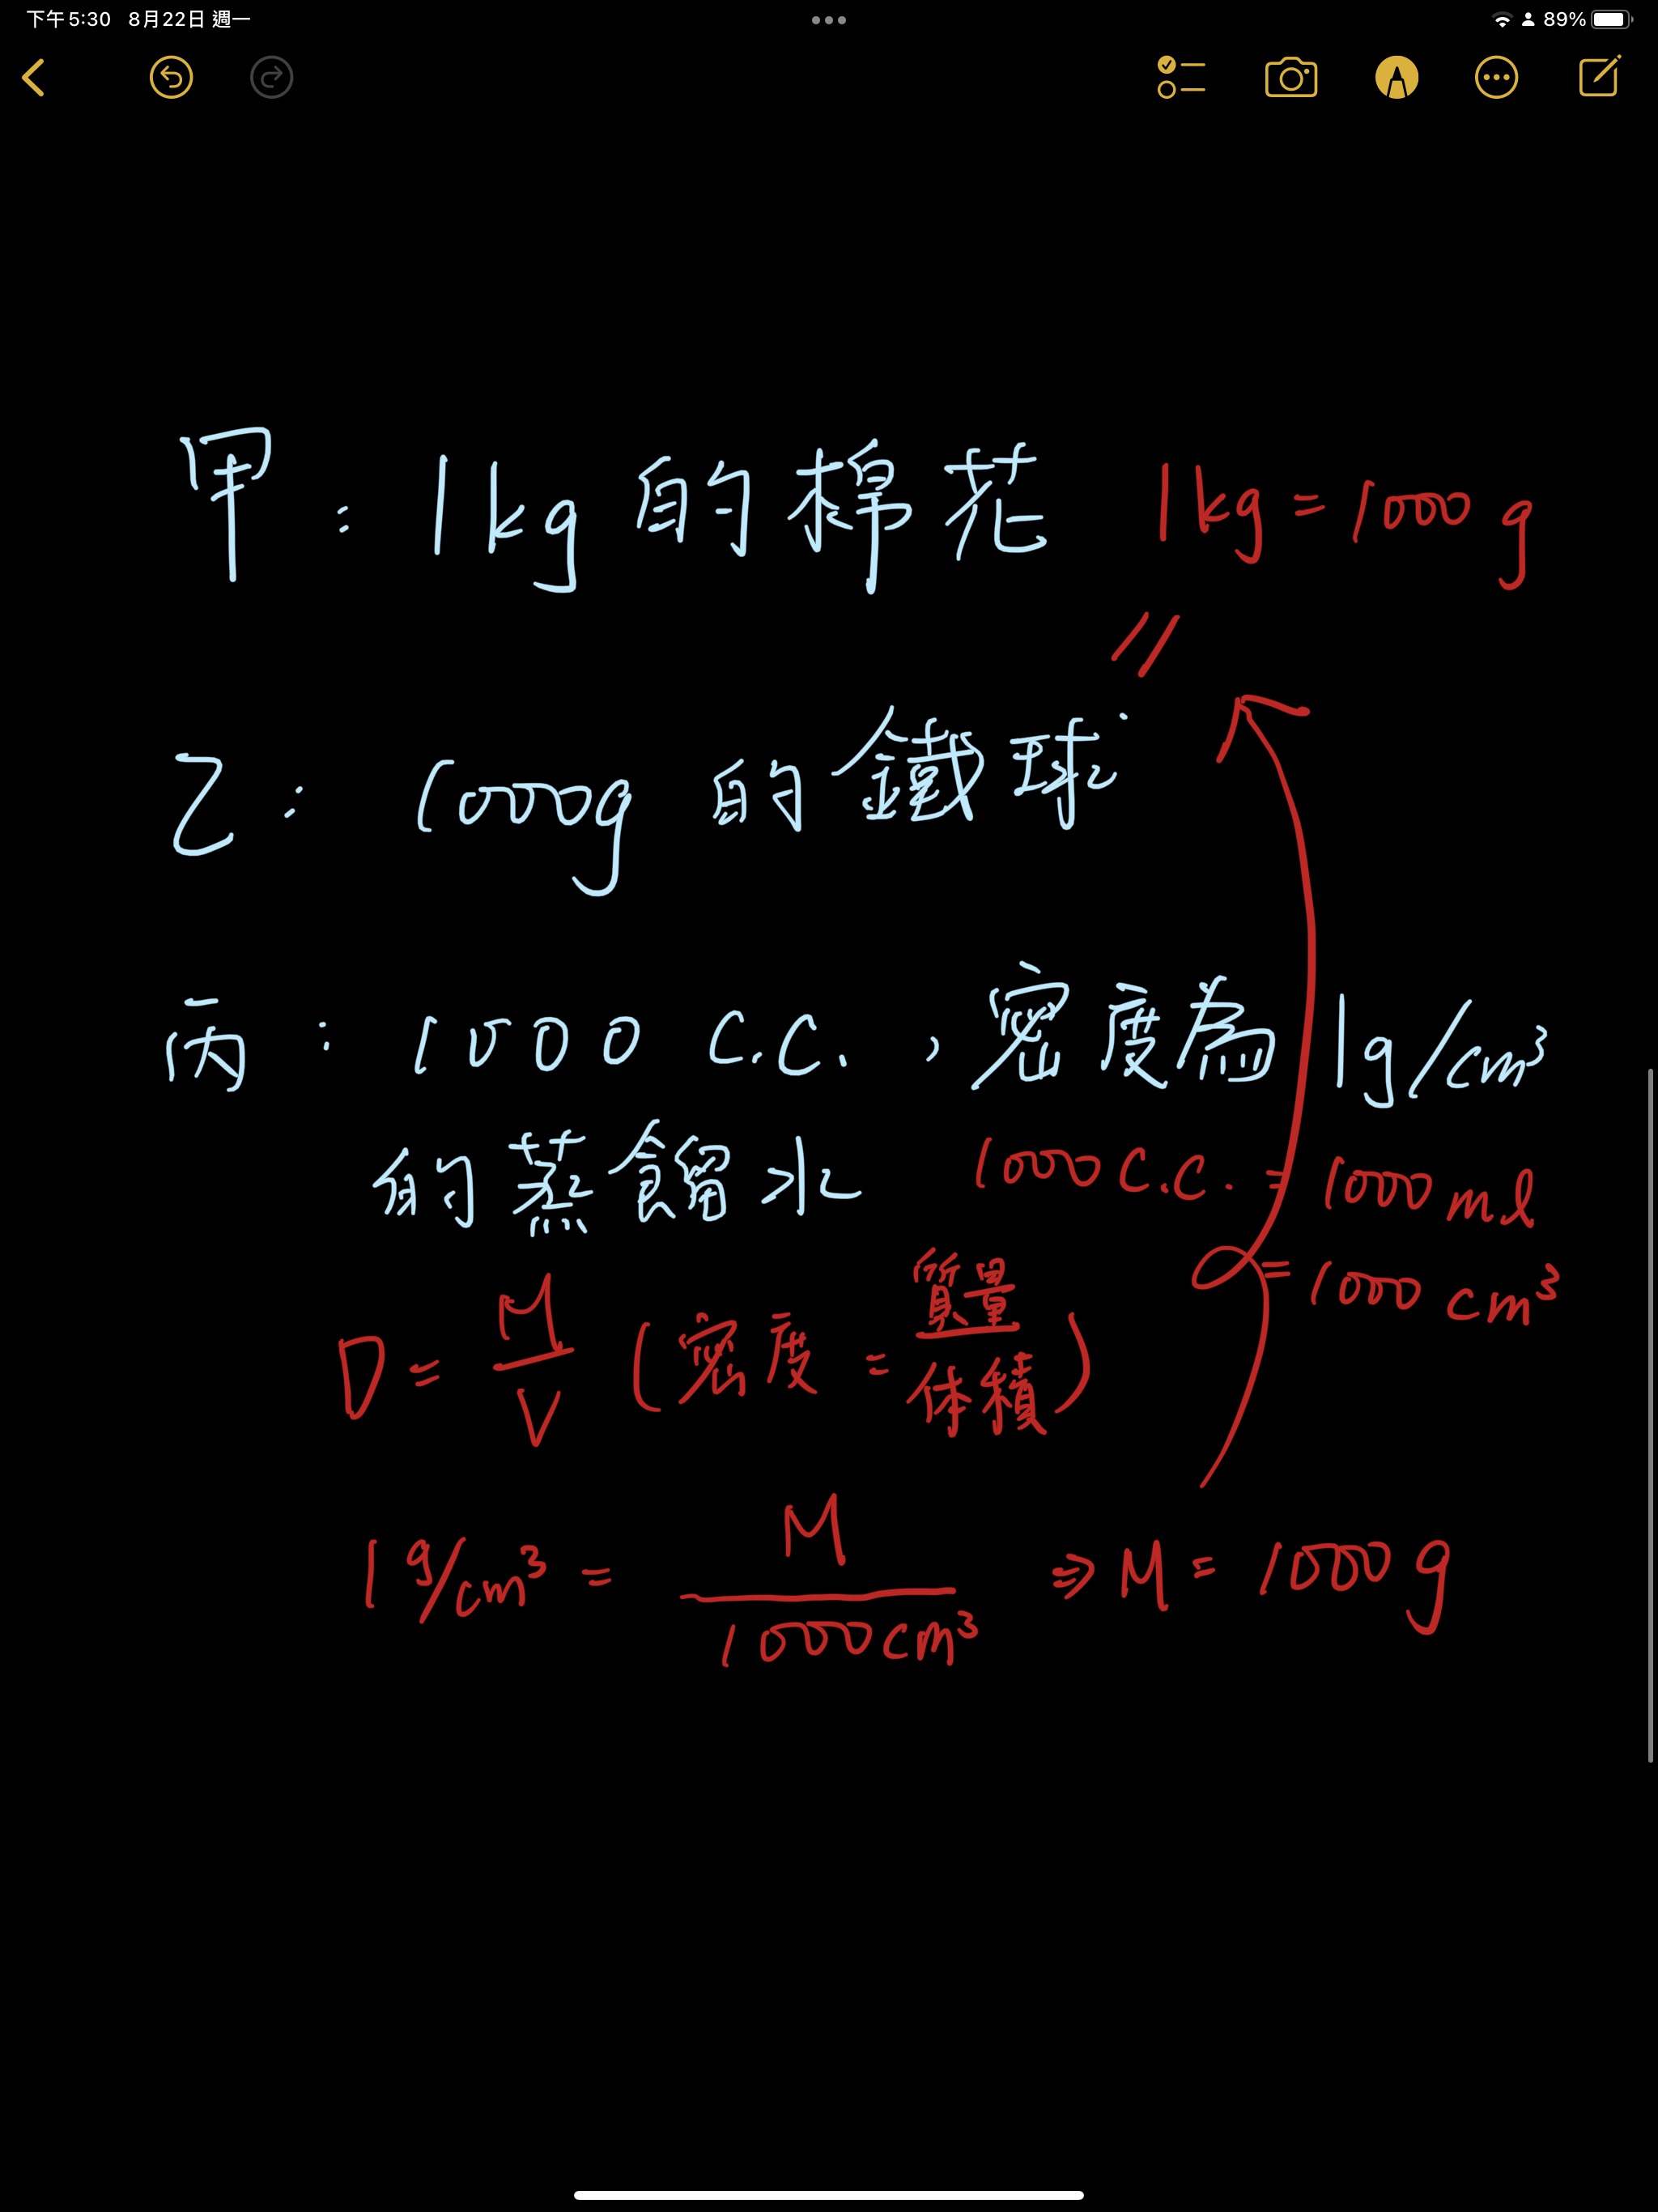 下午5:30 8月22日 週一
89%
甲：1kg的棉花 1kg=1000g
//
乙：1000g 的鐵球
丙：1000 c.c.，密度為1g/cm³
的蒸餾水 1000 c.c. = 1000 ml
= 1000 cm³
D = M/V (密度 = 質量/体積)
1 g/cm³ = M/1000cm³ ⇒ M = 1000 g